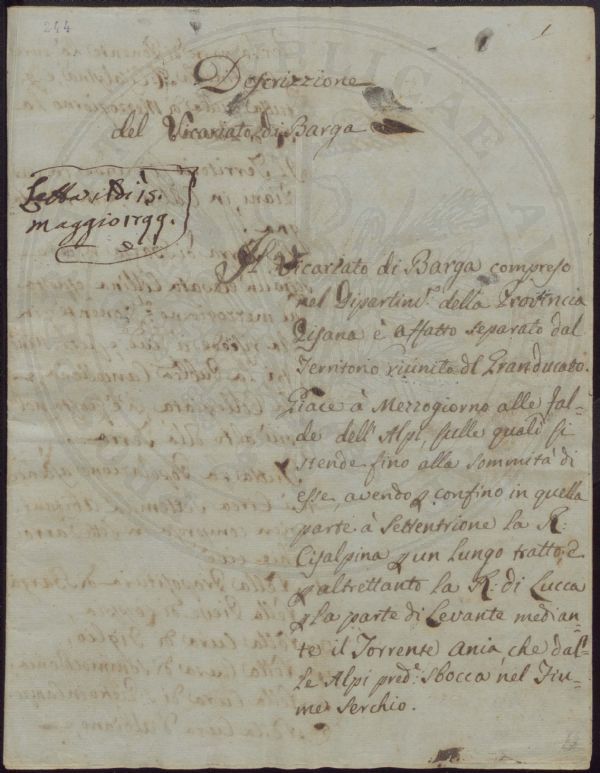 244
1
Descrizzione
del Vicariato di Barga
Letta il dì 15.
Maggio 1799.
Il Vicariato di Barga compreso
nel Dipartim.º della Provincia
Pisana è affatto separato dal
Territorio riunito del Granducato.
Giace à Mezzogiorno alle fal-
de dell'Alpi, sulle quali si
stende fino alla sommità di
esse, avendo p confino in quella
parte à Settentrione la R:
Cisalpina p un lungo tratto, e
p altrettanto la R: di Lucca
p la parte di Levante median-
te il Torrente Ania che dal-
le Alpi pred.e sbocca nel Fiu-
me Serchio.